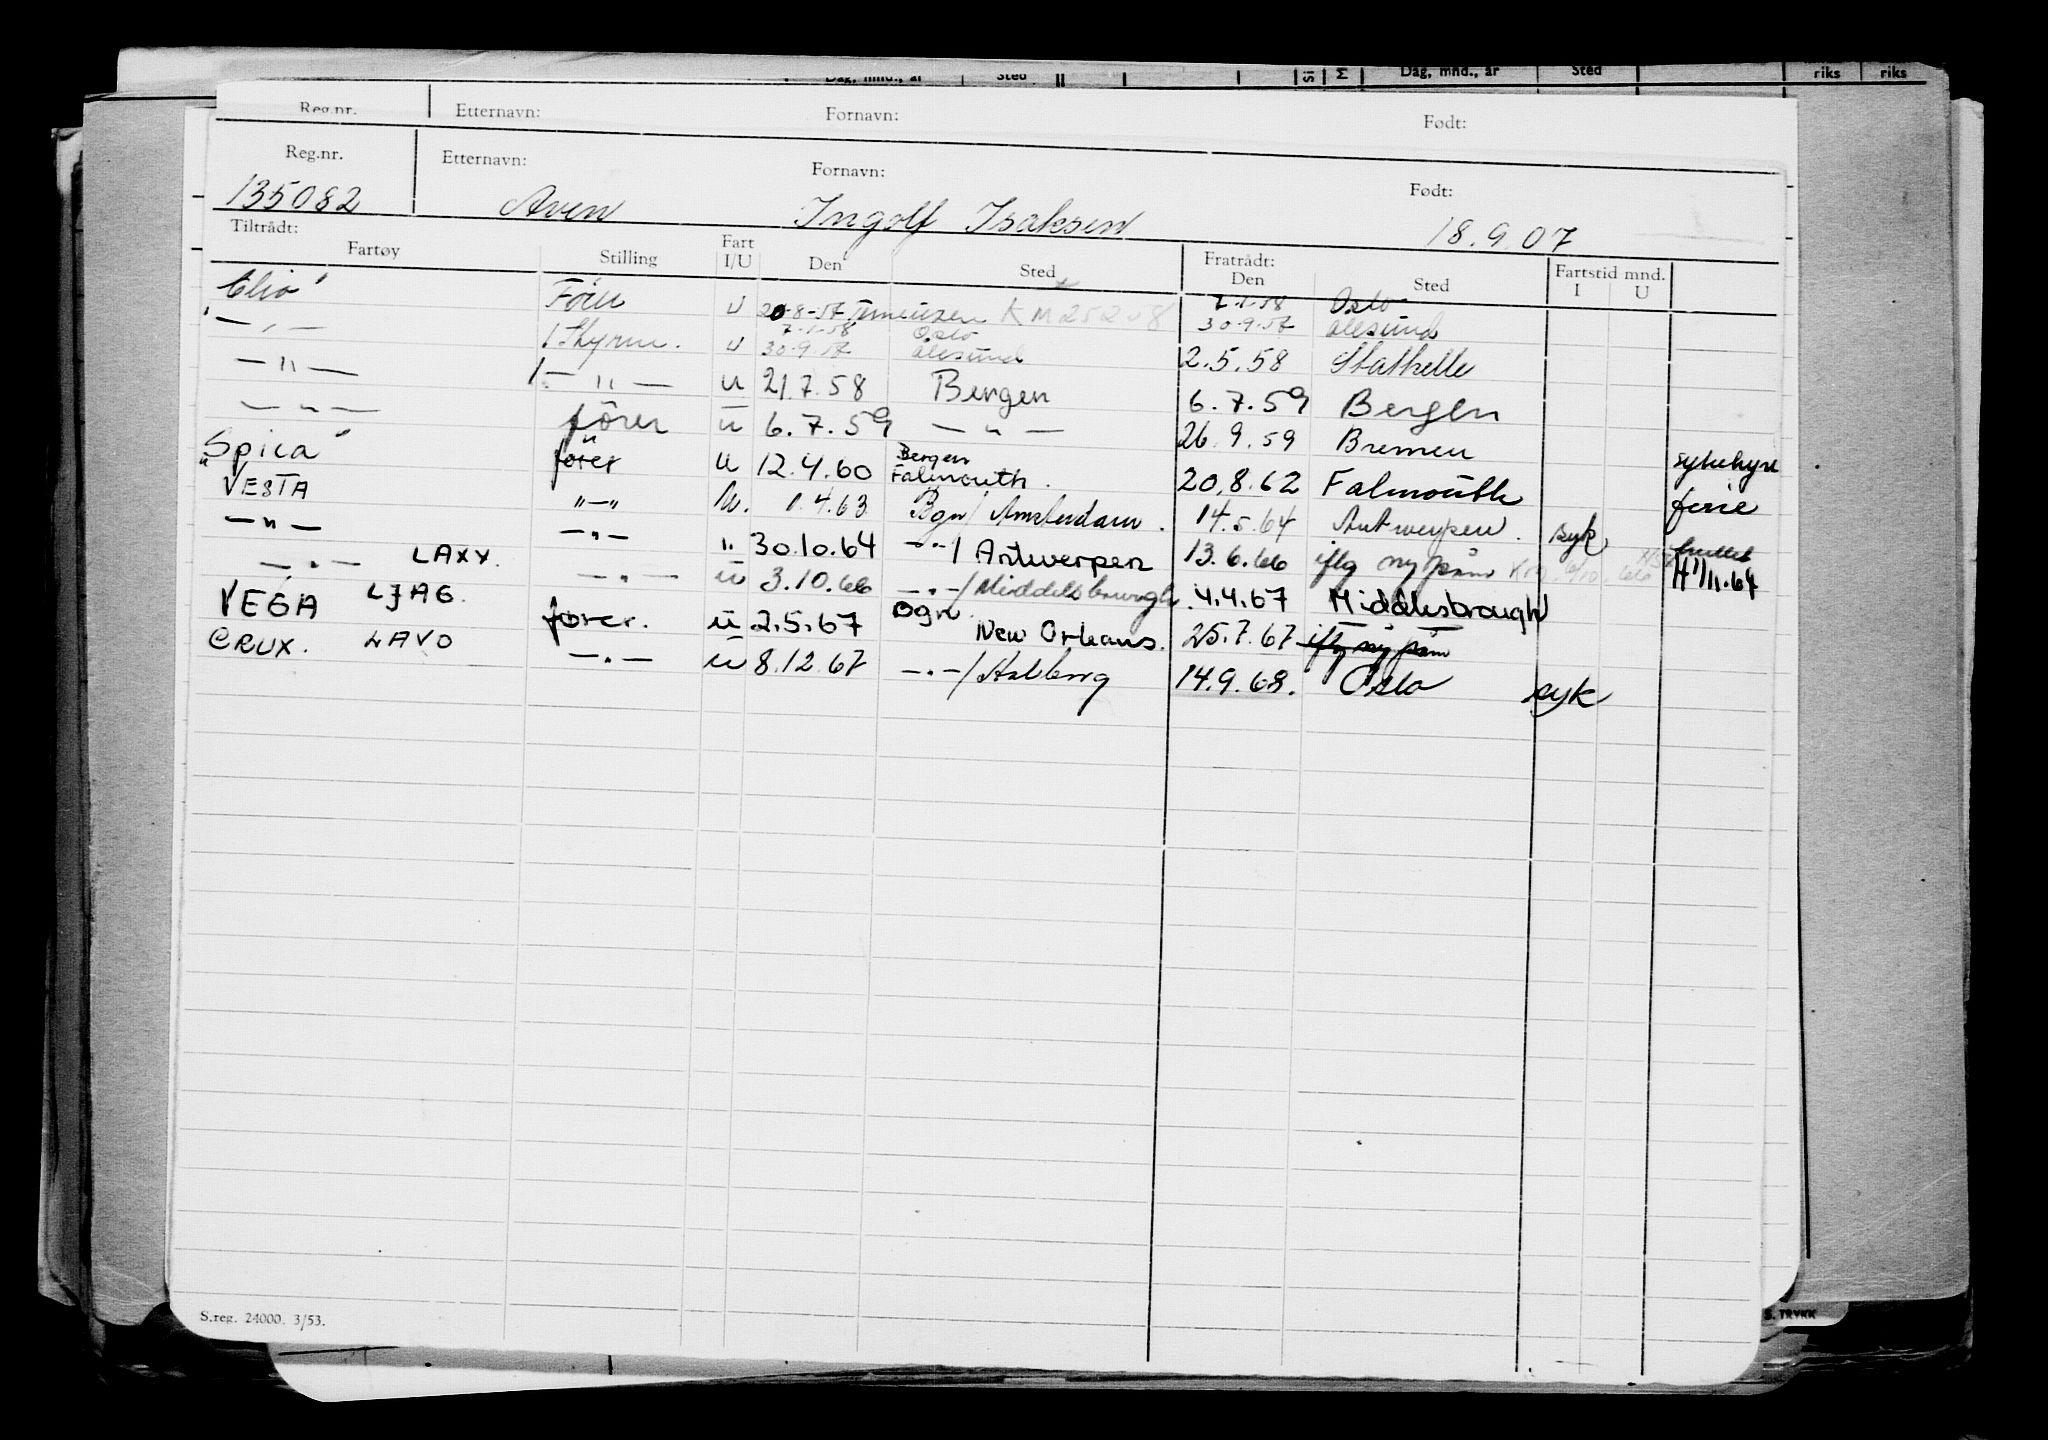 Dag, mnd., år Sted Dag, mnd., år Sted riks riks
Reg.nr. Etternavn: Fornavn: Født:
Reg.nr. Etternavn: Fornavn: Født:
135082 Aven Ingolf Isaksen 18.9.07
Tiltrådt: Fartøy Stilling Fart I/U Den Sted Fratrådt: Den Sted Fartstid mnd. I U
7.1.58 Oslo
"Clio" Förer U 20-8-57 30.9.57 Ålesund
7.1.58 Oslo
— " — 1 Styrm. U 30.9.57 Ålesund 2.5.58 Stathelle
— " — 1 — " — U 21.7.58 Bergen 6.7.59 Bergen
— " — förer U 6.7.59 — " — 26.9.59 Bremen sykehyre
"Spica" förer U 12.4.60 Bergen Falmouth. 20.8.62 Falmouth ferie
VESTA "—" U. 1.4.63 Bgn/ Amsterdam. 14.5.64 Antwerpen. syk
— " — — " — " 30.10.64 — " —/ Antwerpen 13.6.66 iflg ny påm H 1/11.64
— " — LAXX. — " — U 3.10.66 — " —/ Middelsbrough 4.4.67 Middlesbrough
VEGA LJAG. fører. U 2.5.67 Bgn. New Orleans. 25.7.67 iflg ny påm
CRUX. LAVO — " — U 8.12.67 — " —/ Aalborg 14.9.68. Oslo syk
S.reg. 24000. 3/53.
S. TRYKK